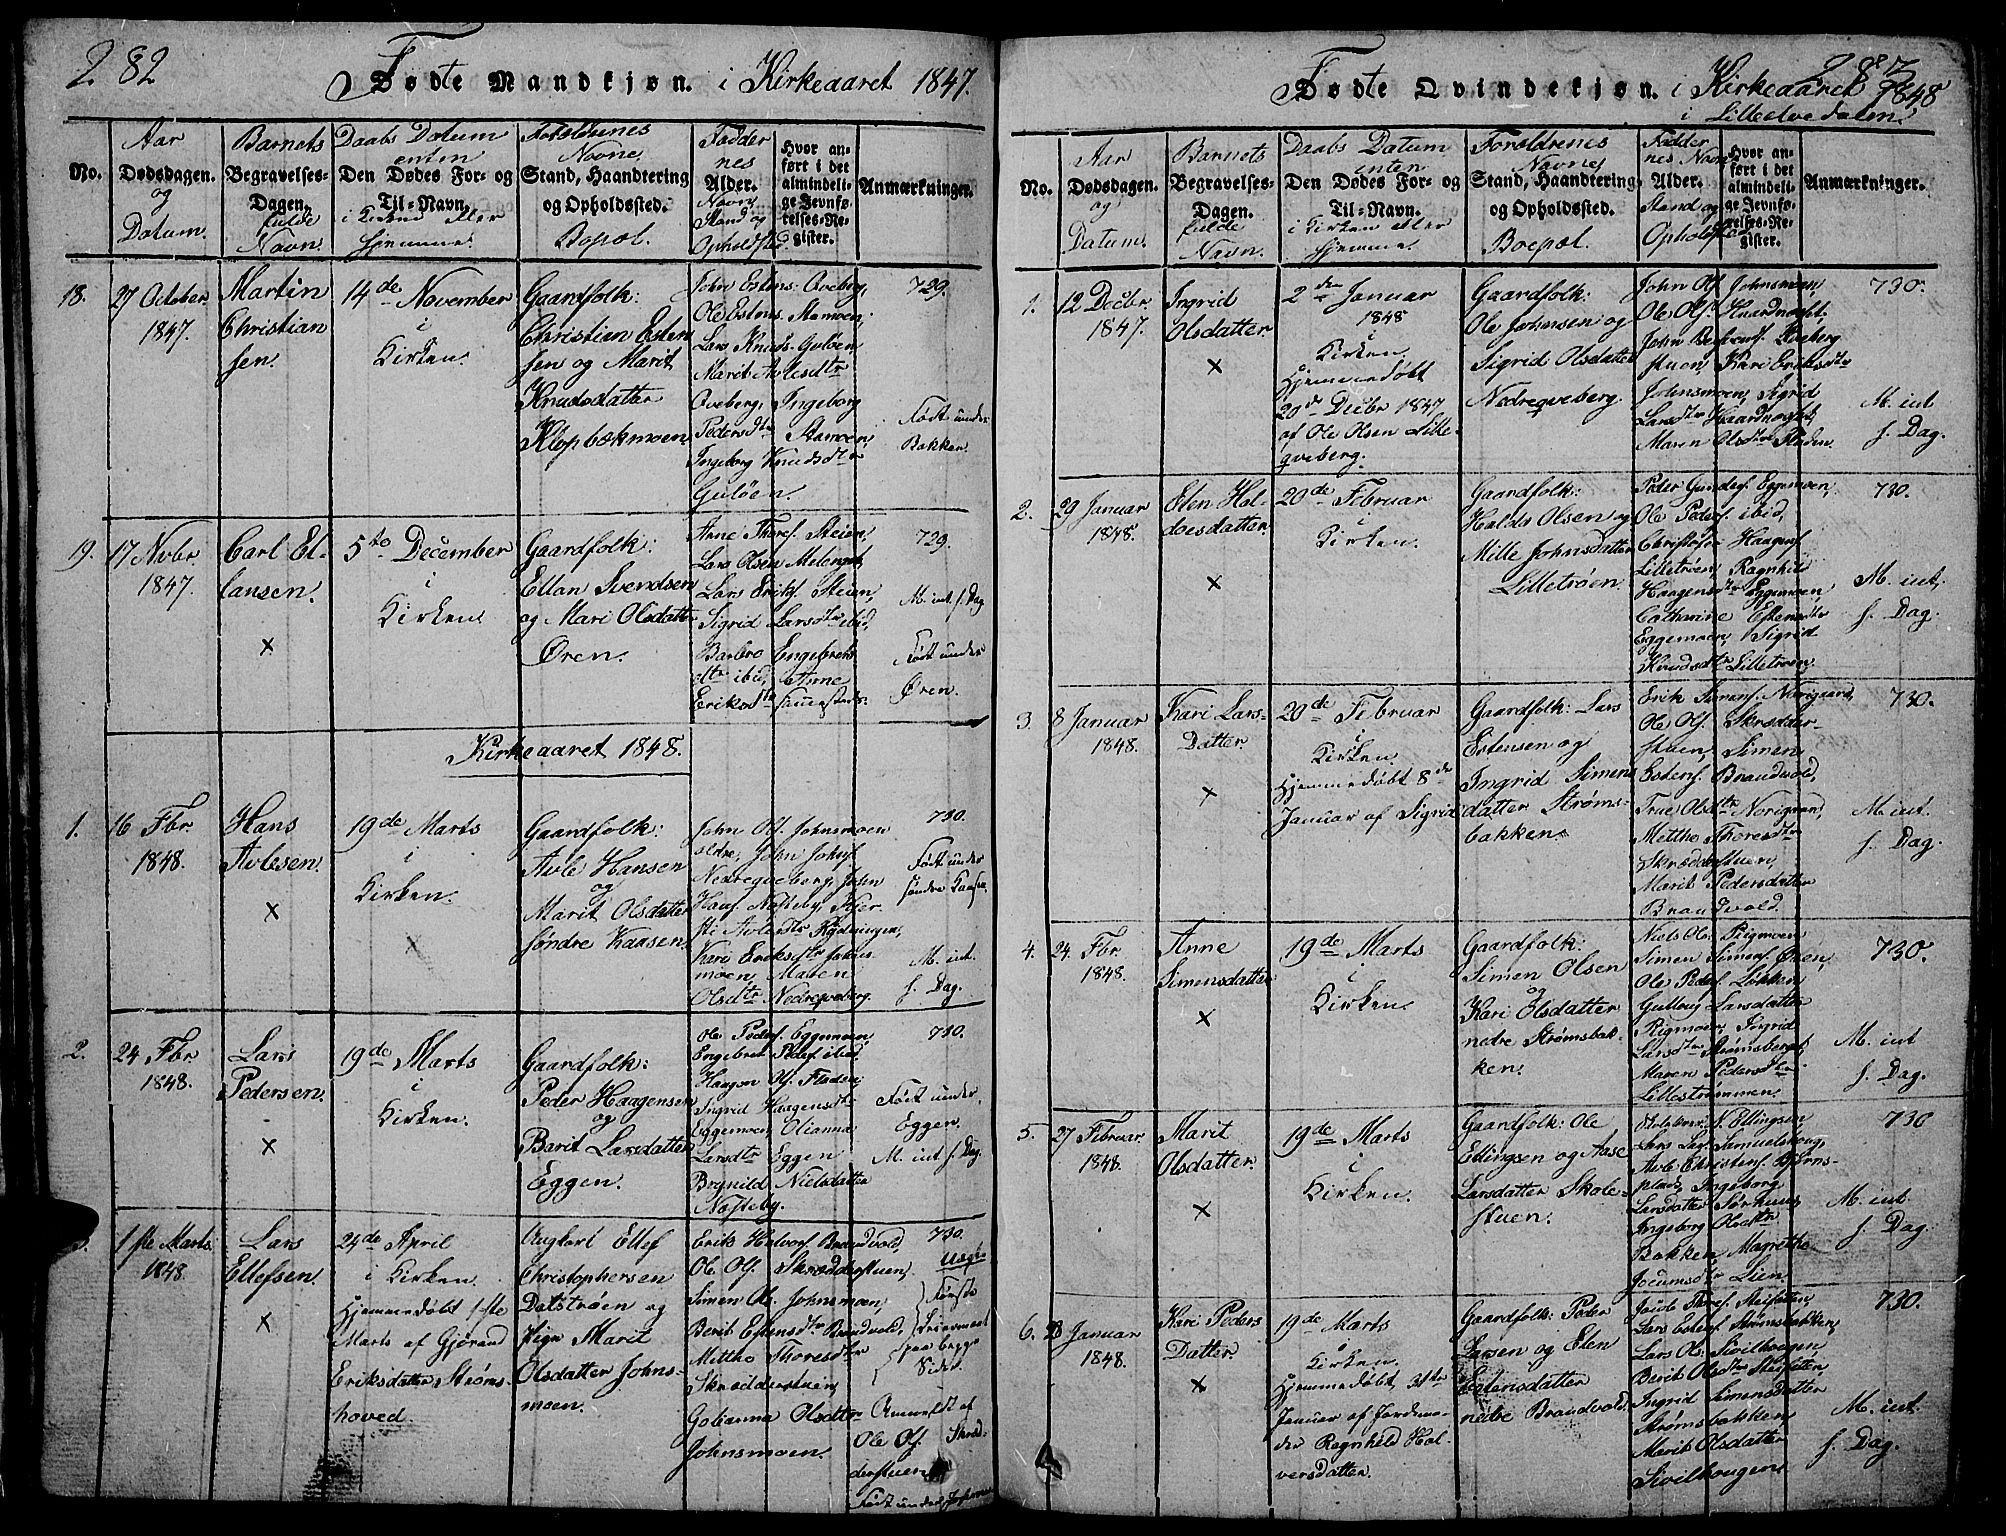 282
Fødte Mandkjøn. i Kirkeaaret 1847.
No.
Aar
Dødsdagen.
og
Datum.
Barnets
Begravelses-
Dagen.
fulde
Navn.
Daabs Datum
enten
Den Dødes For- og
Til-Navn.
i Kirken eller
hjemme.
Forældrenes
Navne
Stand, Haandtering
og Opholdssted.
Bopæl.
Fadder
nes
Alder.
Navn
Stand og
Opholdsted
Hvor an-
ført i det
almindeli-
ge Jevnfø-
relses-Re-
gister.
Anmærkninger.
18.
27 October
1847.
Martin
Christian
sen.
14de November
i
Kirken.
Gaardfolk:
Christian Esten
sen og Marit
Knudsdatter
Klopbækmoen
John Estens. Qveberg,
Ole Estens. Stamoen,
Lars Knuds. Guløen,
Marit Avlesdtr
Qveberg, Ingeborg
Pedersdtr Stamoen,
Ingeborg Knudsdtr
Guløen.
729.
Født under
Bakken.
19.
17 Nvbr
1847.
Carl El-
lansen.
×
5te December
i
Kirken.
Gaardfolk:
Ellan Svendsen
og Mari Olsdatter
Øren.
Arne Thoresf. Steien,
Lars Olsen Melenget,
Lars Eriks. Steien,
Sigrid Larsdtr ibid,
Barbro Engebrets
dtr ibid, Anne
Eriksdtr
729.
M. int. f. Dag
Født under
Øren.
Kirkeaaret 1848.
1.
16 Fbr.
1848.
Hans
Avlesen.
×
19de Marts
i
Kirken.
×
Gaardfolk:
Avle Hansen
og
Marit Olsdatter
søndre Kaasen.
John Ols. Johnsmoen
ældre, John Johns.
Nedreqveberg, John
Hans. Næsteby, Kjer-
sti Avlesdtr
Kari Eriksdtr Johns
moen, Maren
Olsdtr Nedreqveberg.
730.
Født under
søndre Kaasen
M. int.
f. Dag.
2.
24 Fbr
1848.
Lars
Pedersen.
×
19de Marts
i
Kirken.
Gaardfolk:
Peder Haagensen
og
Barit Larsdatter
Eggen.
Ole Peders. Eggemoen,
Engebret Peders. ibid,
Haagen Ols. Fladen,
Ingrid Haagensdtr
Eggemoen, Olianna
Larsdtr Eggen
Brynild Nielsdatter
Næsteby.
730.
Født under
Eggen.
M. int f. Dag.
1ste Marts
1848.
Lars
Ellefsen.
×
24de April
i Kirken.
Hjemmedøbt 1ste
Marts af Gjørand
Eriksdatter Strøms-
hoved.
Ungkarl Ellef
Christophersen
Dalstrøen og
Pige Marit
Olsdatter Johns-
moen.
Erik Halvors. Brandvold,
Ole Ols. Skrædderstuen,
Simen Ols. Johnsmoen,
Berit Estensdtr Brandvold,
Mettho Thoresdtr
Skrædderstuen,
Golianna Olsdtr
Johnsmoen.
730.
Uægte
Første
Leiermaal
paa begge
Sider.
Anmeldt af
Ole Ols. Skræd-
derstuen
Født under
283
Fødte Qvindekjøn. i Kirkeaaret 1848
i Lilleelvedalen.
No.
Aar
Dødsdagen.
og
Datum.
Barnets
Begravelses-
Dagen.
fulde
Navn.
Daabs Datum
enten
Den Dødes For- og
Til-Navn.
i Kirken eller
hjemme.
Forældrenes
Navne
Stand, Haandtering
og Opholdssted.
Boepæl.
Fadder
nes Navn
Alder.
Stand og
Opholdsted
Hvor an-
ført i det
almindeli-
ge Jevnfø-
relses-Re-
gister.
Anmærkninger.
1.
12 Decbr
1847.
Ingrid
Olsdatter.
×
2den Januar
1848
i
Kirken.
Hjemmedøbt
20de Decbr 1847
af Ole Olsen Lille-
qveberg.
Gaardfolk:
Ole Johnsen og
Sigrid Olsdatter
Nedreqveberg.
John Ols. Johnsmoen,
Ole Ols. Haardnæglet.
John Qveberg
stuen, Kari Eriksdtr
Johnsmoen, Sigrid
Larsdtr Haardnæglet,
Maren Olsdtr
730.
M. int
f. Dag.
2.
29 Januar
1848.
Elen Hal-
doesdatter.
×
20de Februar
i
Kirken.
Gaardfolk:
Haldo Olsen og
Mille Johnsdatter
Lilletrøen.
Peder Gunders. Eggemoen,
Ole Peders. ibid,
Christofer Haagens.
Lilletrøen, Ragnhild
Haagensdtr Eggemoen,
Cathrine Estensdtr
Eggemoen, Sigrid
Knudsdtr Lilletrøen.
730.
M. int,
f. Dag.
3.
8 Januar
1848.
Kari Lars-
Datter.
×
20de Februar
i
Kirken.
Hjemmedøbt 8de
Januar af Sigrid
Gaardfolk: Lars
Estensen og
Ingrid Simens
datter Strøms-
bakken.
Erik Simens. Norigaard,
Ole Ols. Skrædder-
stuen, Simen
Estens. Brandvold,
True Olsdtr Norigaard,
Mettho Thoresdtr
Skrædderstuen,
Marit Pedersdatter
Brandvold.
730.
M. int.
f. Dag.
4.
24 Fbr.
1848.
Anne
Simensdatter
×
19de Marts
i
Kirken.
Gaardfolk:
Simen Olsen
og
Kari Olsdatter
nedre Strømsbak-
ken.
Niels Ols.
Simen Simens. Øien,
Ole Peders. Løkken
Gulbrig Larsdatter
Ingrid
Larsdtr Strømsberget,
Maren Pedersdtr
Lillestrømmen.
730.
M. int
f. Dag.
5.
27 Februar
1848.
Marit
Olsdatter.
×
19de Marts
i
Kirken.
Gaardfolk: Ole
Ellingsen og Aase
Larsdatter Skole-
stuen.
N. Ellingsen,
Lars Lars. Samuelshoug,
Avle Christens. Bjørns-
plads, Ingeborg
Larsdatter Sørhuus,
Ingeborg Olsdtr
Bakken, Magrethe
Jocumsdtr Lien.
730
M. int.
f. Dag.
6.
28 Januar
1848.
Kari Peders
Datter.
×
19de Marts
i
Kirken.
Hjemmedøbt, 31te
Januar af Jordemo-
der Ragnhild Hal-
versdatter.
Gaardfolk: Peder
Larsen og Elen
Estensdatter
nedre Brandvold.
Jacob Thores.
Lars Estens. Strømsbakken,
Lars Ols. Sivilhougen
Berit Olsdtr
Ingrid Simensdatter
Strømsbakken
Marit Olsdatter
Sivilhougen
730.
M. int.
f. Dag.